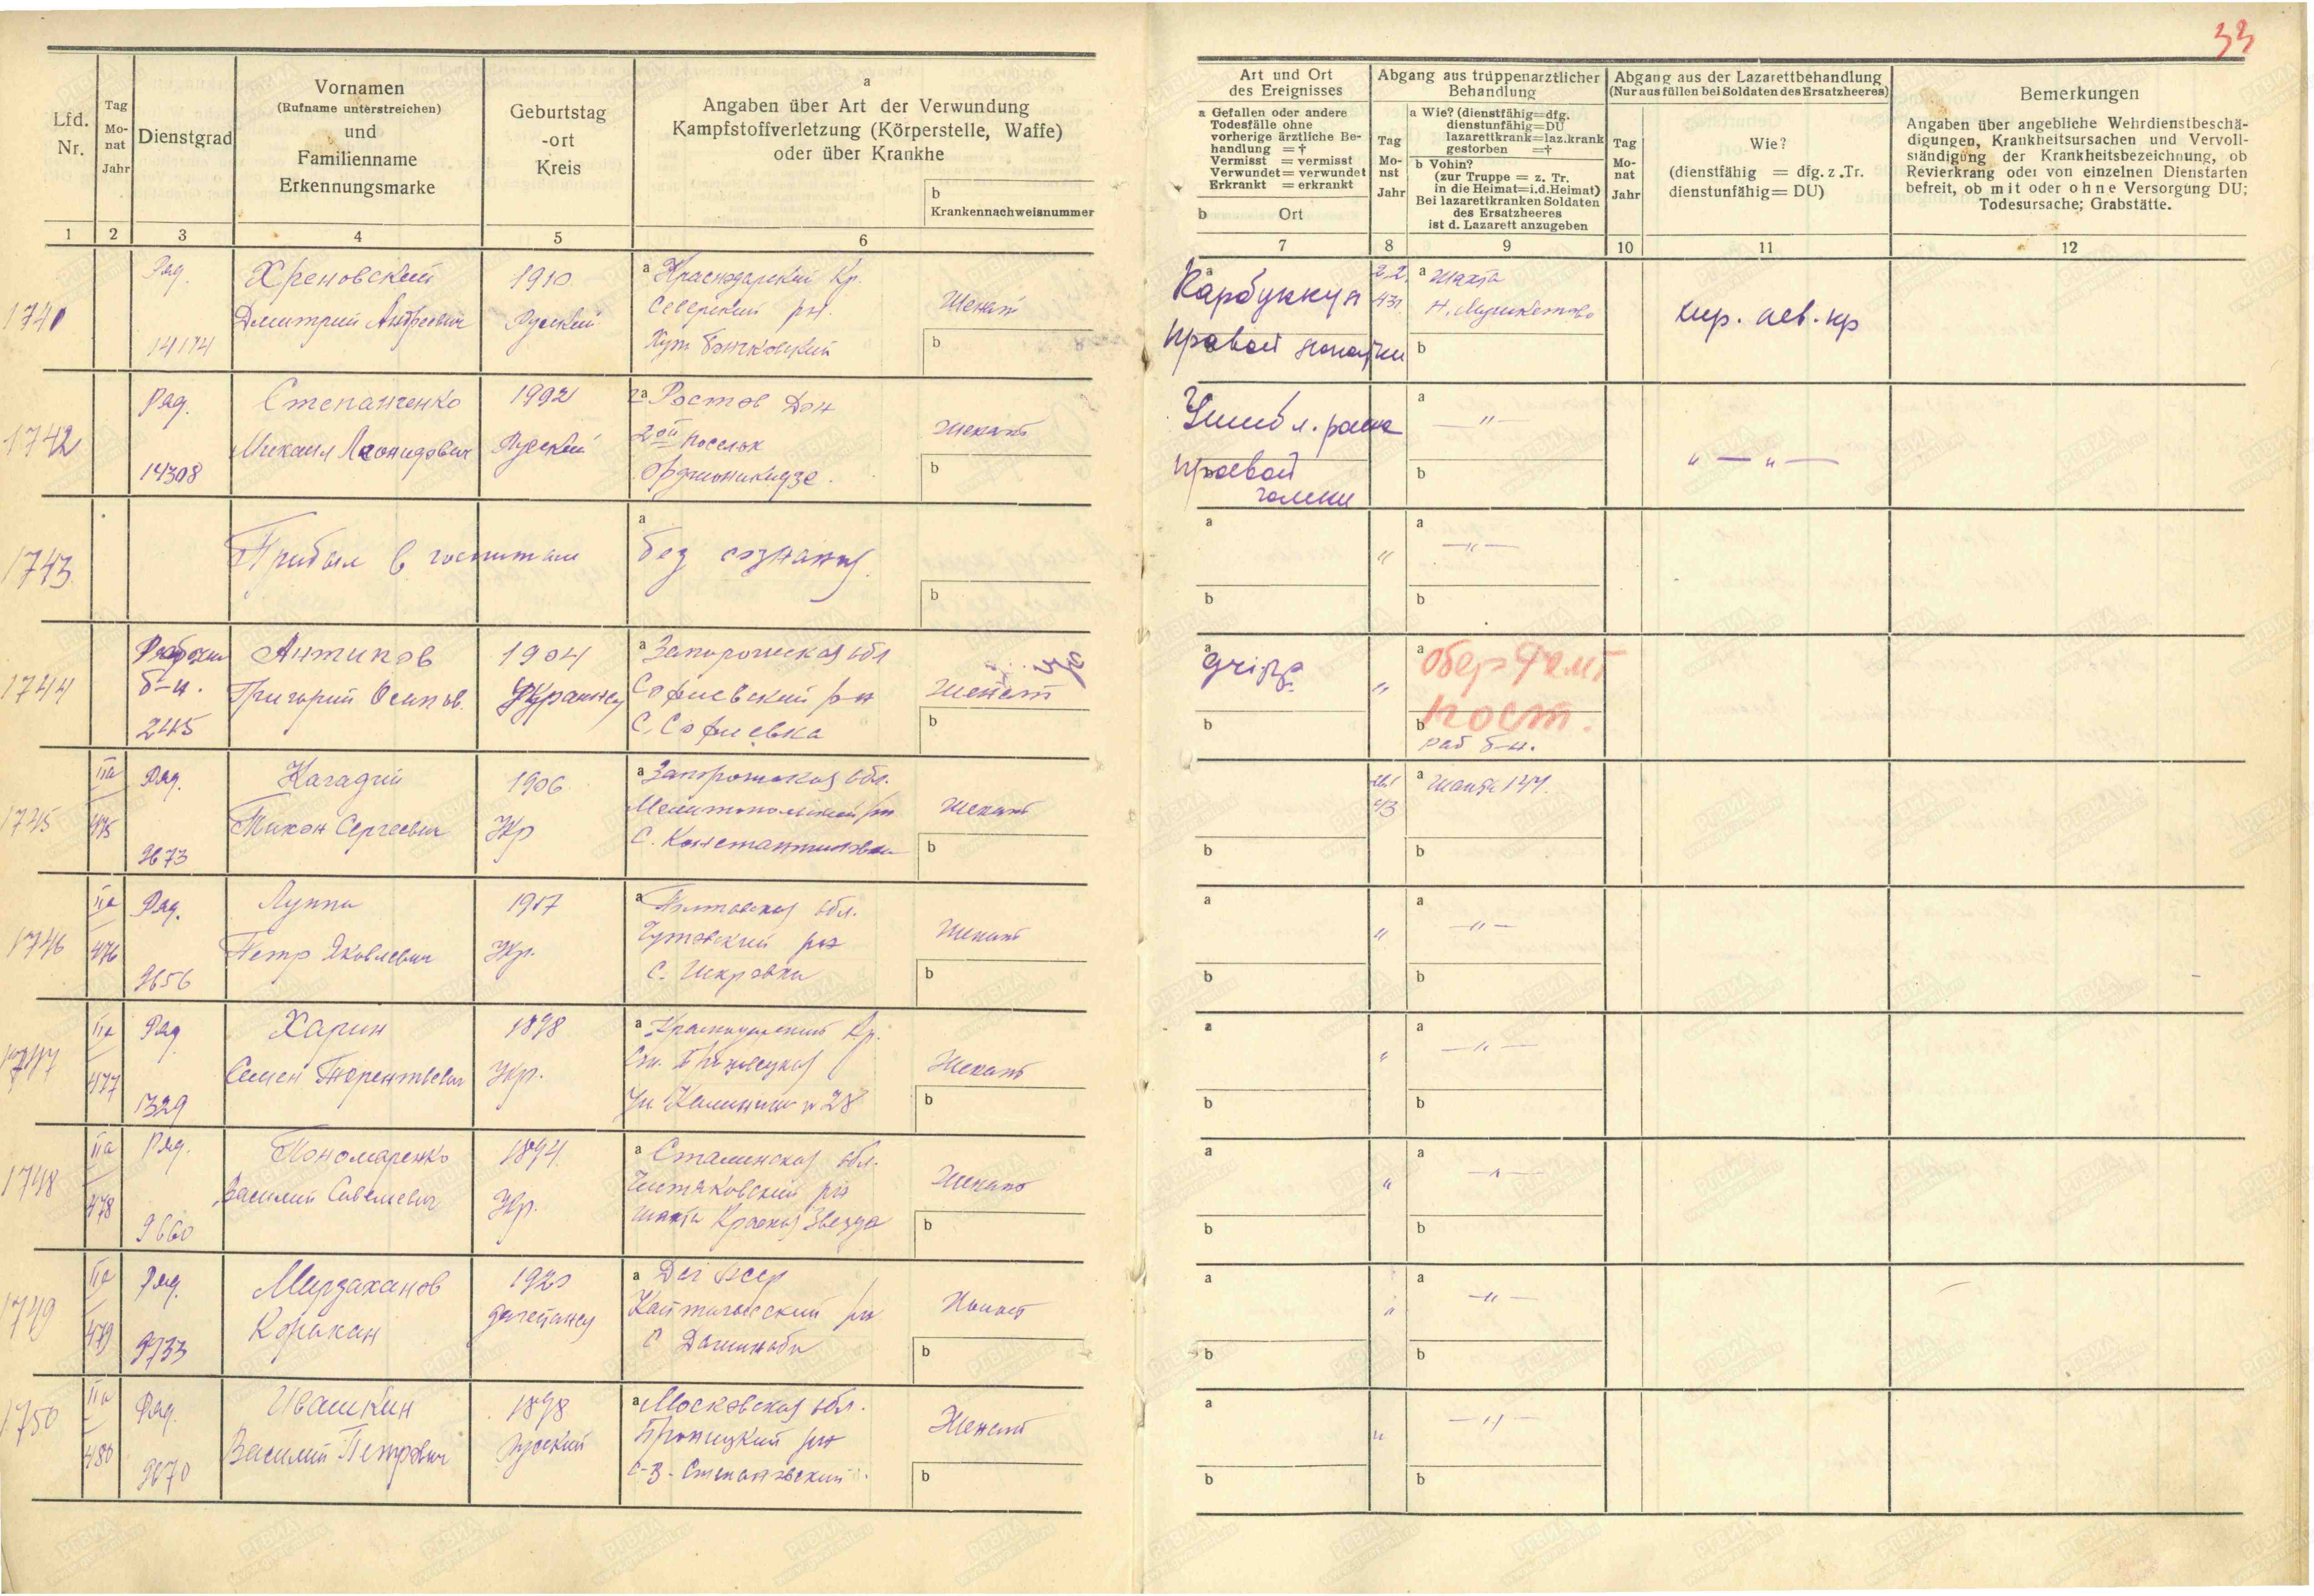 33
Lfd.
Nr.
Tag
Mo-
nat
Jahr
Dienstgrad
Vornamen
(Rufname unterstreichen)
und
Familienname
Erkennungsmarke
Geburtstag
-ort
Kreis
a
Angaben über Art der Verwundung
Kampfstoffverletzung (Körperstelle, Waffe)
oder über Krankhe
b
Krankennachweisnummer
Art und Ort
des Ereignisses
a Gefallen oder andere
Todesfälle ohne
vorherige ärztliche Be-
handlung = †
Vermisst = vermisst
Verwundet = verwundet
Erkrankt = erkrankt
b Ort
Abgang aus truppenarztlicher
Behandlung
Tag
Mo-
nst
Jahr
a Wie? (dienstfähig=dfg.
dienstunfähig=DU
lazarettkrank=laz.krank
gestorben =†
b Vohin?
(zur Truppe = z. Tr.
in die Heimat=i.d.Heimat)
Bei lazarettkranken Soldaten
des Ersatzheeres
ist d. Lazarett anzugeben
Abgang aus der Lazarettbehandlung
(Nur aus füllen bei Soldaten des Ersatzheeres)
Tag
Mo-
nat
Jahr
Wie?
(dienstfähig = dfg. z .Tr.
dienstunfähig= DU)
Bemerkungen
Angaben über angebliche Wehrdienstbeschä-
digungen, Krankheitsursachen und Vervoll-
ständigung der Krankheitsbezeichnung, ob
Revierkrang oder von einzelnen Dienstarten
befreit, ob mit oder ohne Versorgung DU;
Todesursache; Grabstätte.
1 2 3 4 5 6 7 8 9 10 11 12
1741 Ряд. Хреновский 1910 a Краснодарский Кр.
Дмитрий Андреевич Русский Северский рн. Женат
14174 Хут b
a Карбункул a Шахта
правой лопатки b
1742 Ряд. Степанченко 1992 a Ростов Дон
Михаил Леонидович Русский 2ой поселок Женат
14308 Орджоникидзе. b
Ушибл. рана a —"—
правой b "—"—
голени
1743 Прибыл в госпиталь a без сознания.
b
a " a —"—
b b
1744 Рабочий Антипов 1904 a Запорожская обл
б-н. Григорий Осипов. Украинец Софиевский рн Женат
245 С. Софиевка b
a gripp " a
b b пост.
раб б-н.
1745 IIa Ряд. 1906 a Запорожская обл.
475 Тихон Сергеевич Укр Мелитопольский рн Женат
9673 С. Константиновка b
43 a Шахта 144.
b b
1746 IIa Ряд. Луппа 1907 a Полтавская обл.
476 Петр Яковлевич Укр. Чутовский рн Женат
9656 С. Искровка b
a " a —"—
b b
1747 IIa Ряд Харин 1898 a Краснодарский Кр.
477 Семен Терентьевич Укр. Женат
1329 Ул Калинина № 28 b
a " a —"—
b b
1748 IIa Ряд. Пономаренко 1894 a Сталинская обл.
478 Василий Савельевич Укр. Чистяковский рн Женат
9660 Шахта Красная Звезда b
a " a —"—
b b
1749 IIa Ряд. Мирзаханов 1920 a Даг АССР
479 дагестанец рн Женат
9733 С b
a " a —"—
b b
1750 IIa Ряд. Ивашкин 1898 a Московская обл.
480 Василий Петрович Русский Броницкий рн Женат
9670 С-з - Степановский b
a " a —"—
b b